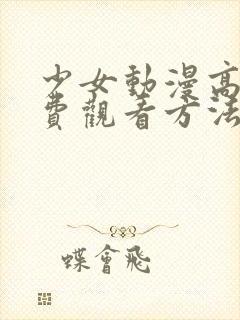 少女動漫高
費觀看方法
蝶會飛